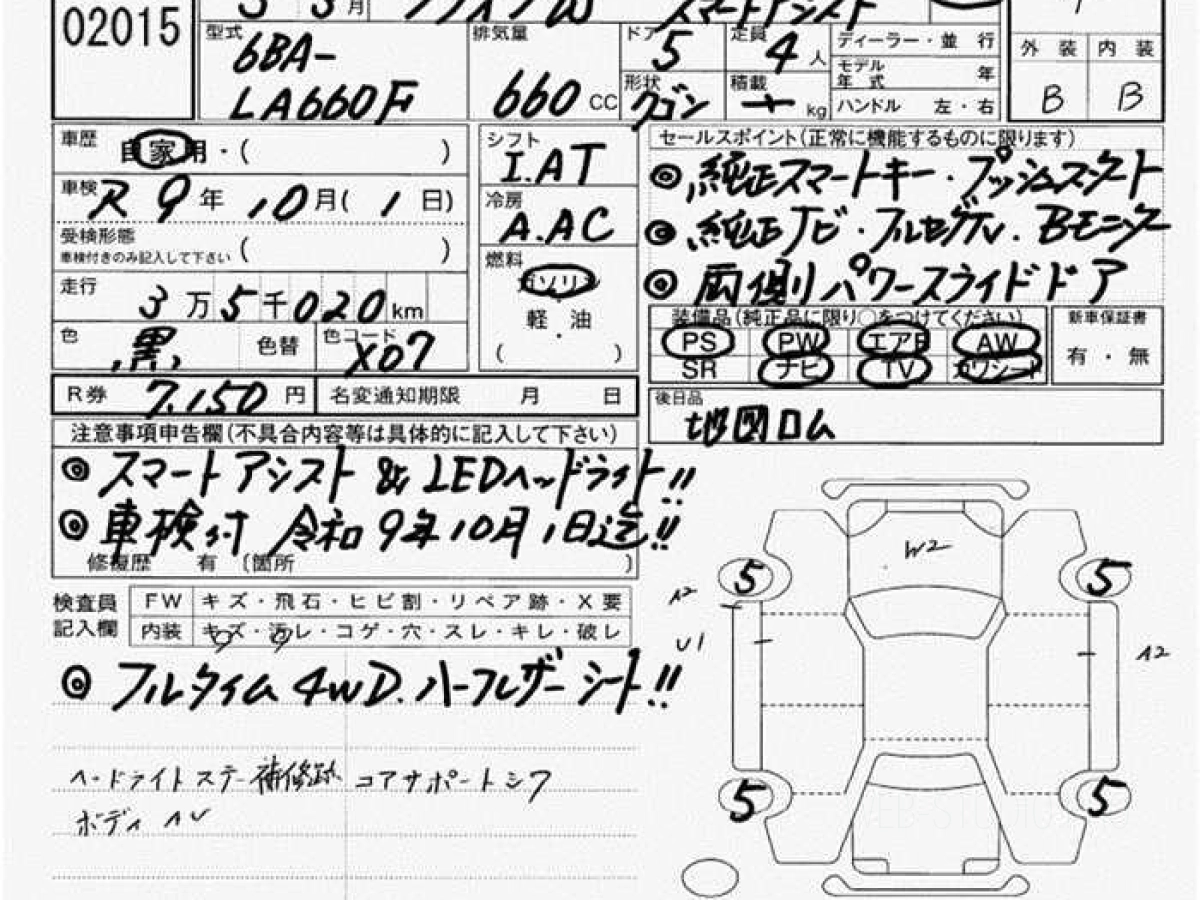 02015
3 3月
スマートアシスト
型式 排気量 ドア 5 定員 4人 ディーラー・並行 外装 内装
6BA-
LA660F 660cc 形状 ワゴン 積載 kg モデル年式 年 B B
ハンドル 左・右
車歴 自家用・( ) シフト I.AT セールスポイント(正常に機能するものに限ります)
◎純正スマートキー・プッシュスタート
車検 R 9年 10月(1日) 冷房 A.AC
◎純正ナビ・フルセグTV.Bモニター
受検形態 ( )
車検付きのみ記入して下さい
燃料 ガソリン
◎両側パワースライドドア
走行 3万5千020km 軽・油
( )
装備品(純正品に限り○をつけてください) 新車保証書
PS PW エアB AW 有・無
SR ナビ TV カワシート
色 黒 色替 色コード X07
R券 7,150円 名変通知期限 月 日
後日品
地図ロム
注意事項申告欄(不具合内容等は具体的に記入して下さい)
◎スマートアシスト & LEDヘッドライト!!
◎車検付 令和9年10月1日迄!!
修復歴 有 〔箇所 〕
検査員記入欄 FW キズ・飛石・ヒビ割・リペア跡・X要
内装 キズ・汚レ・コゲ・穴・スレ・キレ・破レ
◎フルタイム4WD.ハーフレザーシート!!
ヘッドライトステー補修跡 コアサポートシワ
ボディ AU
W2
5 5
A2
U1
A2
5 5